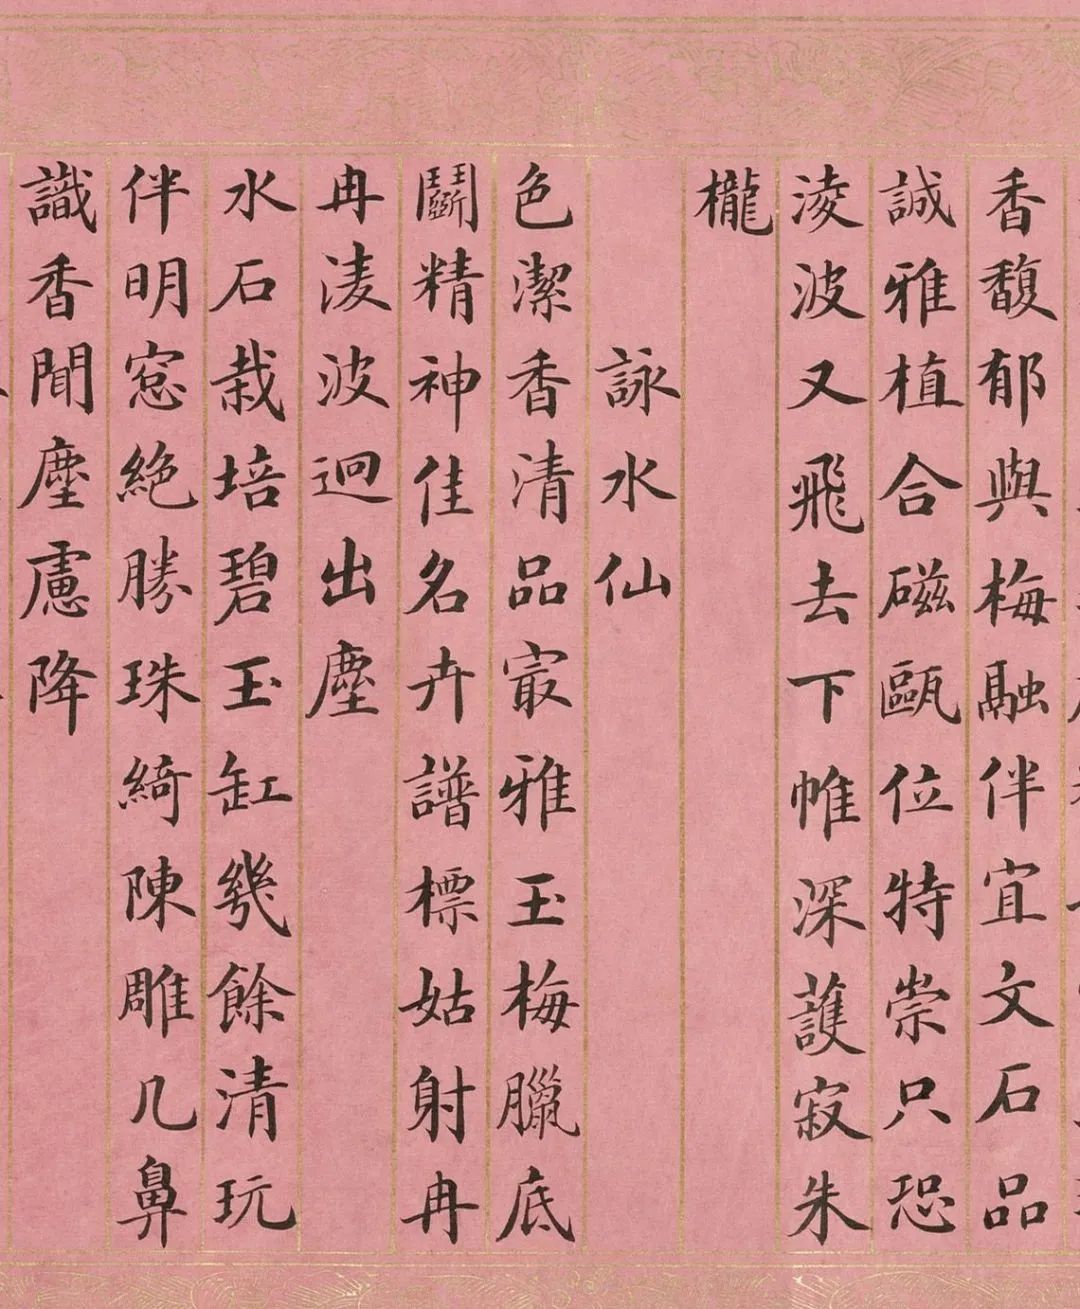 香馥郁與梅融伴宜文石品
誠雅植合磁甌位特崇只恐
淩波又飛去下帷深護寂朱
櫳
詠水仙
色潔香清品㝡雅玉梅臘底
鬬精神佳名卉譜標姑射冉
冉淩波迥出塵
水石栽培碧玉缸幾餘清玩
伴明窓絶勝珠綺陳雕几鼻
識香聞塵慮降